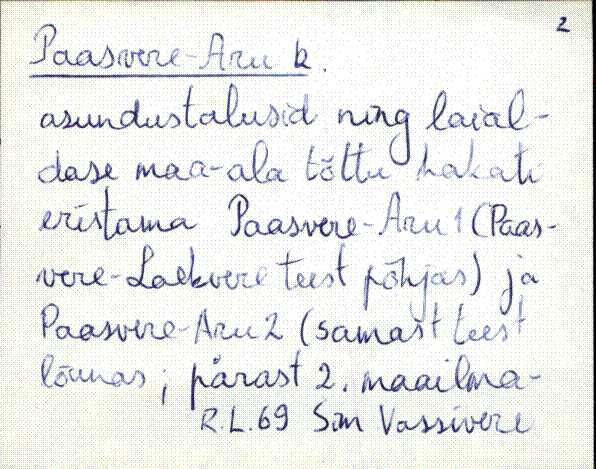 2
Paasvere-Aru k.
asundustalusid ning laial-
dase maa-ala tõttu hakati
eristama Paasvere-Aru 1 (Paas-
vere-Laekvere teest põhjas) ja
Paasvere-Aru 2 (samast teest
lõunas; pärast 2. maailma-
R.L.69 Sim Vassivere